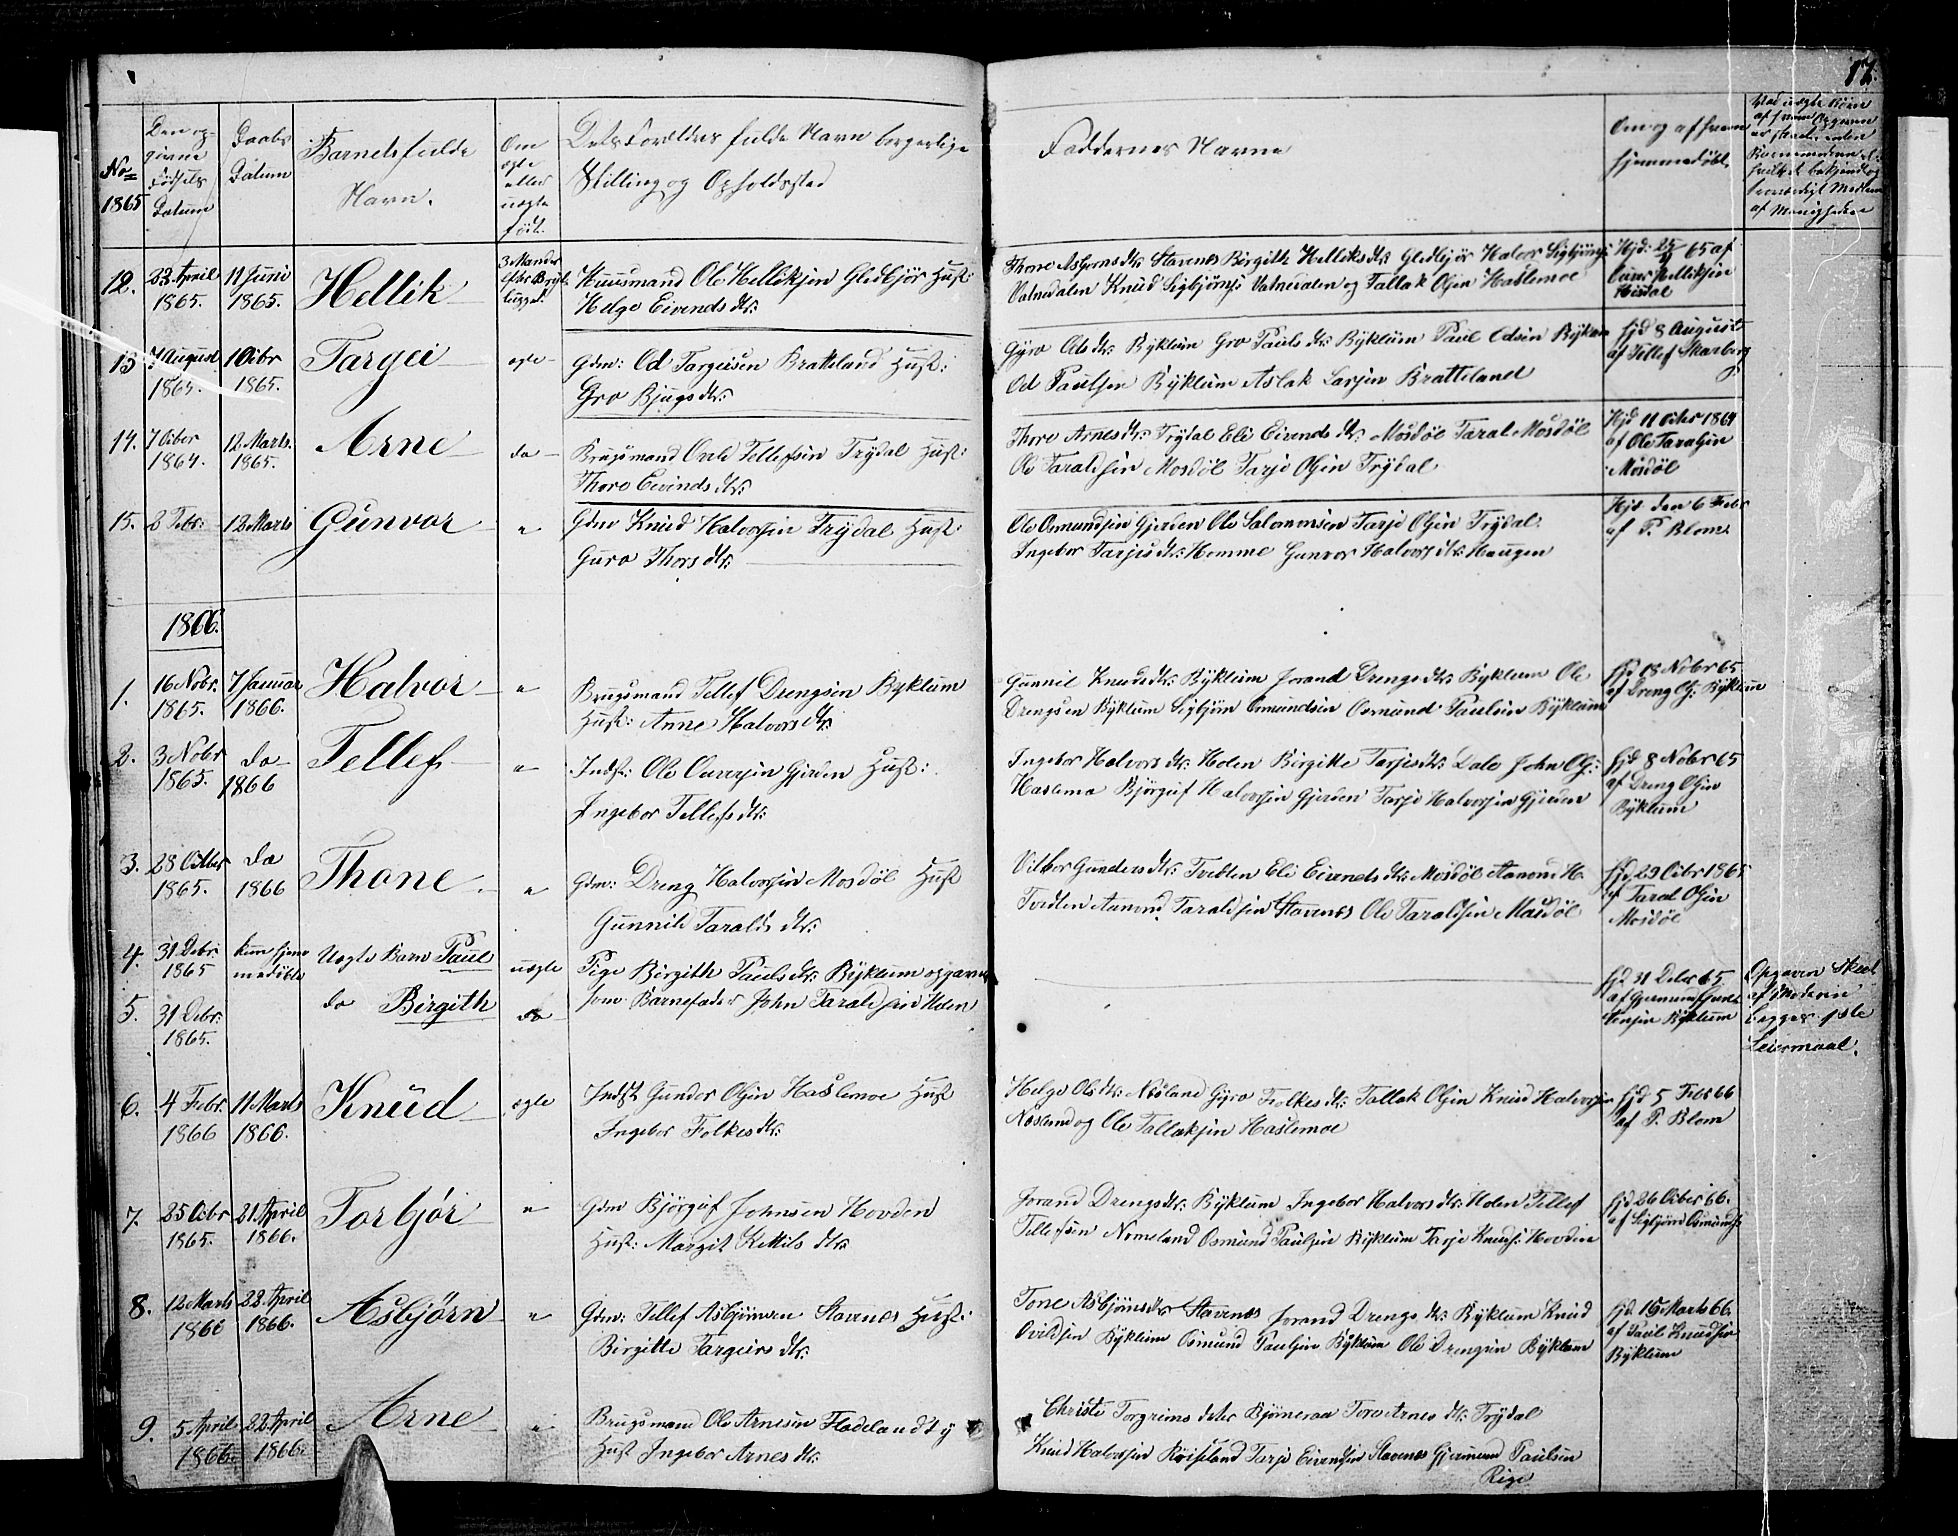 17.
No= 1865
Den opgivne Fødsels Datum
Daabs Datum
Barnets fulde Navn.
Om ægte eller uægte født.
Dets Forældres fulde Navn borgerlige
Stilling og Opholdssted
Faddernes Navne
Om og af hvem hjemmedøbt.
12. 23 April 1865. 11 Juni 1865. Hellik
Huusmand Ole Helliksen Gledbjør Hust:
Helge Eivends dtr:
Thone Asbjørns dtr: Stavenes Birgith Helliks dtr: Gledbjør Halvor Sigbjørns
Vatnedalen Knud Sigbjørns Vatnedalen og Tallak Olsen Haslemoe
13 7 August 1865. 1 Octbr 1865. Targei ægte
Gdm: Od Targeisen Bratteland Hust:
Gro Bjugs dtr:
Gyro Ols dtr: Bÿklum Gro Pauls dtr: Bÿklum Paul Odsen Bÿklum
Od Paulsen Bÿklum Aslak Larsen Bratteland
Hjd 8 August
af Tellef Skarberg
14. 7 Octber 1864. 12 Marts. 1865. Arne do
Brugsmand Ole Tellefsen Trydal Hust:
Thore Eivinds dtr:
Thore Arnes dtr: Trÿdal Eli Eivends dtr: Mosdøl Taral Mosdøl
Ole Taraldsen Mosdøl Tarje Olsen Trÿdal
Hjd 11 Octbr 1864
af Ole Taralsen
Mosdøl
15. 2 Febr: 12 Marts Gunvor "
Gdm Knud Halvorsen Trÿdal Hust:
Guro Thors dtr:
Ole Osmundsen Gjerden Ole Salomonsen Tarje Olsen Trÿdal
Ingebor Tarjeis dtr: Homme Gunvor Halvors dtr: Haugen
Hjd den 6 Febr
af P. Blom
1866.
1. 16 Nobr. 1865. 7 Januar 1866. Halvor "
Brugsmand Tellef Drengsen Byklum
Hust: Anne Halvors dtr:
Gunnil Knuds dtr: Bÿklum Jorand Drengs dtr: Bÿklum Ole
Drengsen Bÿklum Sigbjørn Osmundsen Osmund Paulsen Bÿklum
hjd 18 Nobr 65
af Dreng Ols: Bÿklum
2. 3 Nobr 1865. do 1866 Tellef "
Inds: Ole Gjerden Hust:
Ingebor Tellefs dtr:
Ingebor Halvors dtr: Holen Birgitte Tarjeis dtr: Dale John Ols:
Haslemo Bjørguf Halvorsen Gjerden Tarje Halvorsen Gjerden
hjd 8 Nobr 65
af Dreng Olsen
Bÿklum
3. 28 Octber 1865. do 1866 Thone "
Gdm: Dreng Halvorsen Mosdøl Hust
Gunnild Taralds dtr:
Gunders dtr: Tvedten Eli Eivends dtr: Mosdøl Aamond H.
Tvedten Aamond Taraldsen Stavenes Ole Taraldsen Mosdøl
hjd 29 Octbr 1865
af Taral Olsen
Mosdøl
4. 31 Debr: 1865 kun hjemmedøbte Uægte Barn Paul uægte
5. 31 Debr: 1865. do Birgith do
Pige Birgith Pauls dtr: Bÿklum opgivne
som Barnefader John Taraldsen Holen
hjd 31 Debr 65
Bÿklum
Opgaven Skeet
af Moderen
begges 1ste
Leiermaal.
6. 4 Febr. 1866 11 Marts 1866. Knud ægte
Indst Gunder Olsen Haslemoe Hust
Ingebor Folkes dtr:
Helge Ols dtr: Nesland Gÿro Folkes dtr: Tallak Olsen Knud Halvorsen
Nesland og Ole Tallaksen Haslemoe
hjd 5 Febr 66
af P. Blom
7. 25 Octbr 1865. 21. April 1866. Torbjør "
Gdm Bjørguf Johnsen Hovden
Hust: Margit Kittils dtr:
Jorand Drengs dtr: Bÿklum Ingebor Halvors dtr: Holen Tellef
Tellefsen Nomeland Osmund Paulsen Bÿklum Tarje Knuds: Hovden
hjd 26 Octber 66.
af Sigbjørn Osmunds:
8. 12 Marts 1866 22. April 1866. Asbjørn "
Gdm: Tellef Asbjørnsen Stavenes Hust:
Birgitte Targeirs dtr:
Tone Asbjørns dtr Stavenes Jorand Drengs dtr: Bÿklum Knud
Bÿklum Osmund Paulsen Bÿklum Ole Drengsen Bÿklum
hjd 15 Marts 66.
af Paul Knudsen
Bÿklum
9. 5 April 1866. 22. April 1866. Arne "
Brugsmand Ole Arnesen Flodeland
Hust Ingebor Arnes dtr:
Christi Torgrims dater Bjørneraa Tore Arnes dtr: Trÿdal
Knud Halvorsen Røisland Tarje Eivendsen Stavenes Gjermund Paulsen
Rige